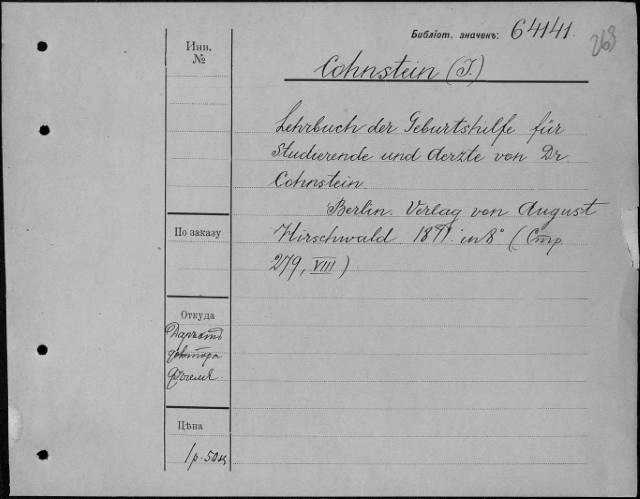 Библіот. значекъ: 64141.
263
Инв.
№
Cohnstein (J.)
Lehrbuch der Geburtshilfe für
Studierende und Aerzte von Dr
Cohnstein.
Berlin. Verlag von August
Hirschwald 1871. in 8° (Стр.
279, VIII)
По заказу
Откуда
доктора
Цѣна
1 р. 50 к